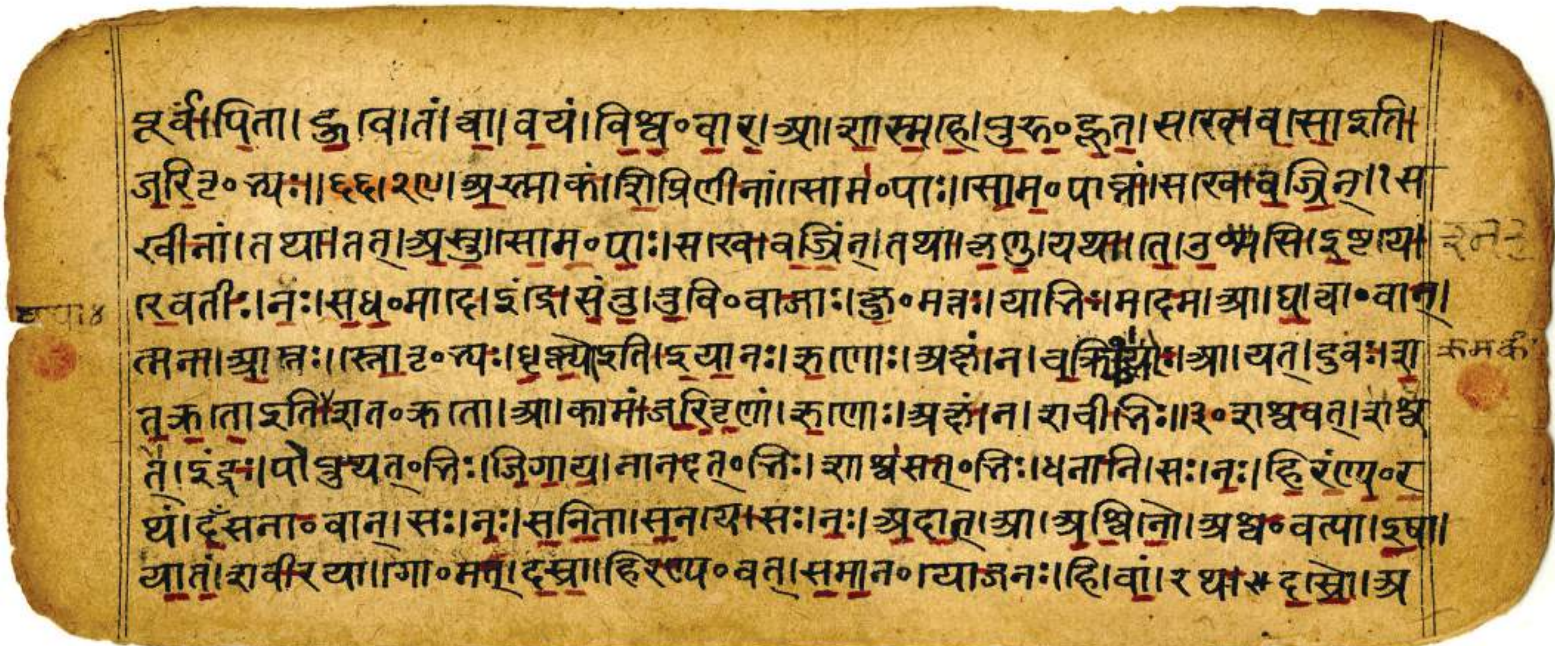 पूर्वं।पिता।हुवे।तं।त्वा।वयं।विश्व॰वार।आ।शास्महे।पुरु॰हूत।सखे।वसो इति।
जरितृ॰भ्यः॥६६।२९।अस्माकं।शिप्रिणीनां।सोम॰पाः।सोम॰पाव्नां।सखे।वज्रिन्।स
खीनां।तथा।तत्।अस्तु।सोम॰पाः।सखे।वज्रिन्।तथा।कृणु।यथा।ते।उश्मसि।इष्टये।
रेवतीः।नः।सध॰मादे।इंद्रे।संतु।तुवि॰वाजाः।क्षु॰मन्तः।याभिः।मदेम।आ।घ।त्वा॰वान्।
त्मना।आप्तः।स्तोतृ॰भ्यः।धृष्णो इति।इयानः।ऋणोः।अक्षं।न।चक्र्योः।आ।यत्।दुवः।श
तक्रतो इति शत॰क्रतो।आ।कामं।जरितॄणां।ऋणोः।अक्षं।न।शचीभिः॥३०शश्वत्।
इंद्रः।पोप्रुथत्॰भिः।जिगाय।नानदत्॰भिः।शाश्वसत्॰भिः।धनानि।सः।नः।हिरण्य॰र
थं।दंसना॰वान्।सः।नः।सनिता।सनये।सः।नः।अदात्।आ।अश्विनौ।अश्व॰वत्या।इषा।
यातं।शवीरया।गो॰मत्।दस्रा।हिरण्य॰वत्।समान॰योजनः।हि।वां।रथः।दस्रौ।अ